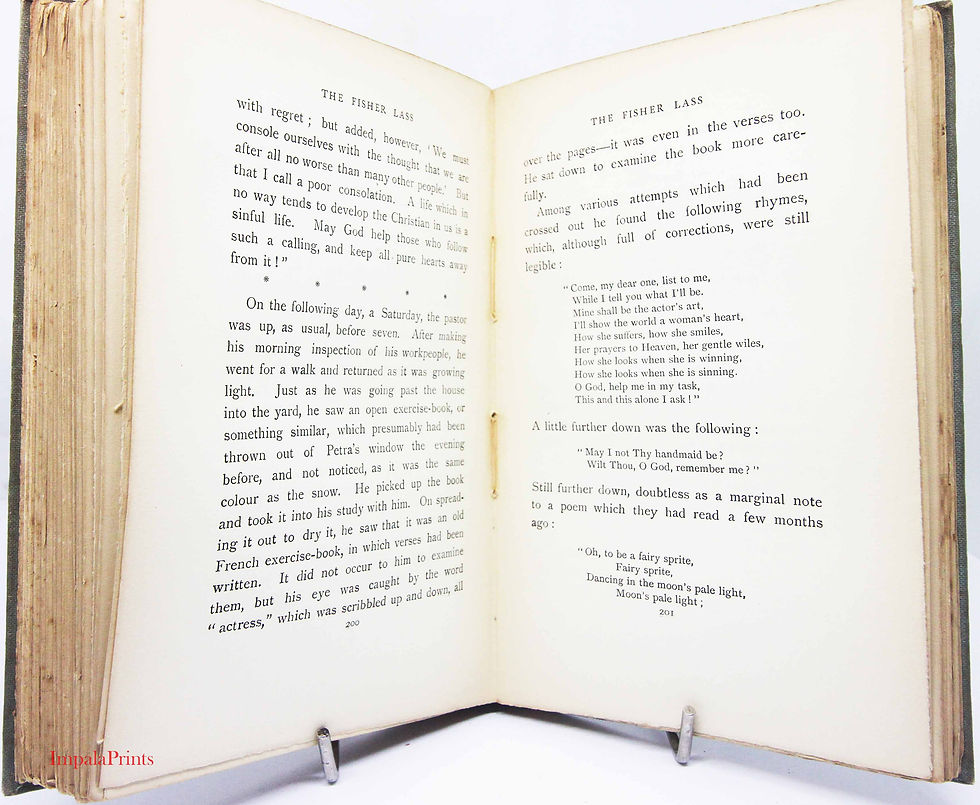 THE FISHER LASS
with regret ; but added, however, ‘ We must
console ourselves with the thought that we are
after all no worse than many other people.’ But
that I call a poor consolation. A life which in
no way tends to develop the Christian in us is a
sinful life. May God help those who follow
such a calling, and keep all pure hearts away
from it ! ”
* * * * *
On the following day, a Saturday, the pastor
was up, as usual, before seven. After making
his morning inspection of his workpeople, he
went for a walk and returned as it was growing
light. Just as he was going past the house
into the yard, he saw an open exercise-book, or
something similar, which presumably had been
thrown out of Petra’s window the evening
before, and not noticed, as it was the same
colour as the snow. He picked up the book
and took it into his study with him. On spread-
ing it out to dry it, he saw that it was an old
French exercise-book, in which verses had been
written. It did not occur to him to examine
them, but his eye was caught by the word
“ actress,” which was scribbled up and down, all
200
THE FISHER LASS
over the pages—it was even in the verses too.
He sat down to examine the book more care-
fully.
Among various attempts which had been
crossed out he found the following rhymes,
which, although full of corrections, were still
legible :
“ Come, my dear one, list to me,
While I tell you what I’ll be.
Mine shall be the actor’s art,
I’ll show the world a woman’s heart,
How she suffers, how she smiles,
Her prayers to Heaven, her gentle wiles,
How she looks when she is winning,
How she looks when she is sinning.
O God, help me in my task,
This and this alone I ask ! ”
A little further down was the following :
“ May I not Thy handmaid be ?
Wilt Thou, O God, remember me ? ”
Still further down, doubtless as a marginal note
to a poem which they had read a few months
ago :
“ Oh, to be a fairy sprite,
Fairy sprite,
Dancing in the moon’s pale light,
Moon’s pale light ;
201
ImpalaPrints